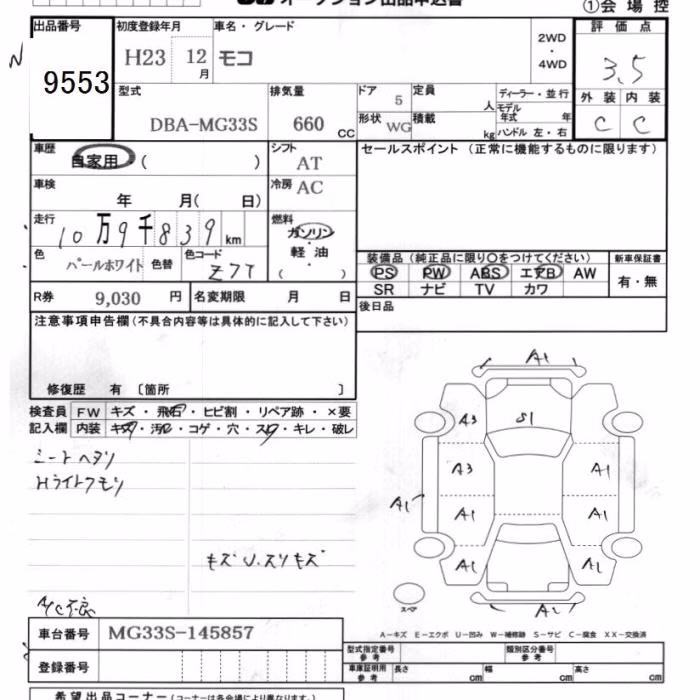 オークション出品申込書
①会場控
出品番号
9553
初度登録年月
H23 12月
車名・グレード
モコ
2WD・4WD
評価点
3.5
型式
DBA-MG33S
排気量
660 CC
ドア 5
定員 人
ディーラー・並行
モデル年式 年
形状 WG
積載 kg
ハンドル 左・右
外装 内装
C C
車歴
自家用 ( )
シフト AT
セールスポイント (正常に機能するものに限ります)
車検
年 月( 日)
冷房 AC
走行
10万9千839 km
燃料
ガソリン
軽油
( )
色
パールホワイト 色替
色コード
Z7T
装備品 (純正品に限り〇をつけてください)
PS PW ABS エアB AW
SR ナビ TV カワ
新車保証書
有・無
R券 9,030 円
名変期限 月 日
後日品
注意事項申告欄 (不具合内容等は具体的に記入して下さい)
修復歴 有 〔箇所 〕
検査員記入欄
FW キズ・飛石・ヒビ割・リペア跡・×要
内装 キズ・汚れ・コゲ・穴・スレ・キレ・破レ
シートヘタリ
Hライトクモリ
キズU.スリキズ
A/C不良
A1
A3
S1
A3
A1
A1
A1
A1
A1
A1
スペア
A2
A−キズ E−エクボ U−凹み W−補修跡 S−サビ C−腐食 XX−交換済
車台番号 MG33S-145857
登録番号
型式指定番号 参考
類別区分番号 参考
車庫証明用 参考
長さ cm 幅 cm 高さ cm
希望出品コーナー (コーナーは各会場により異なります。)